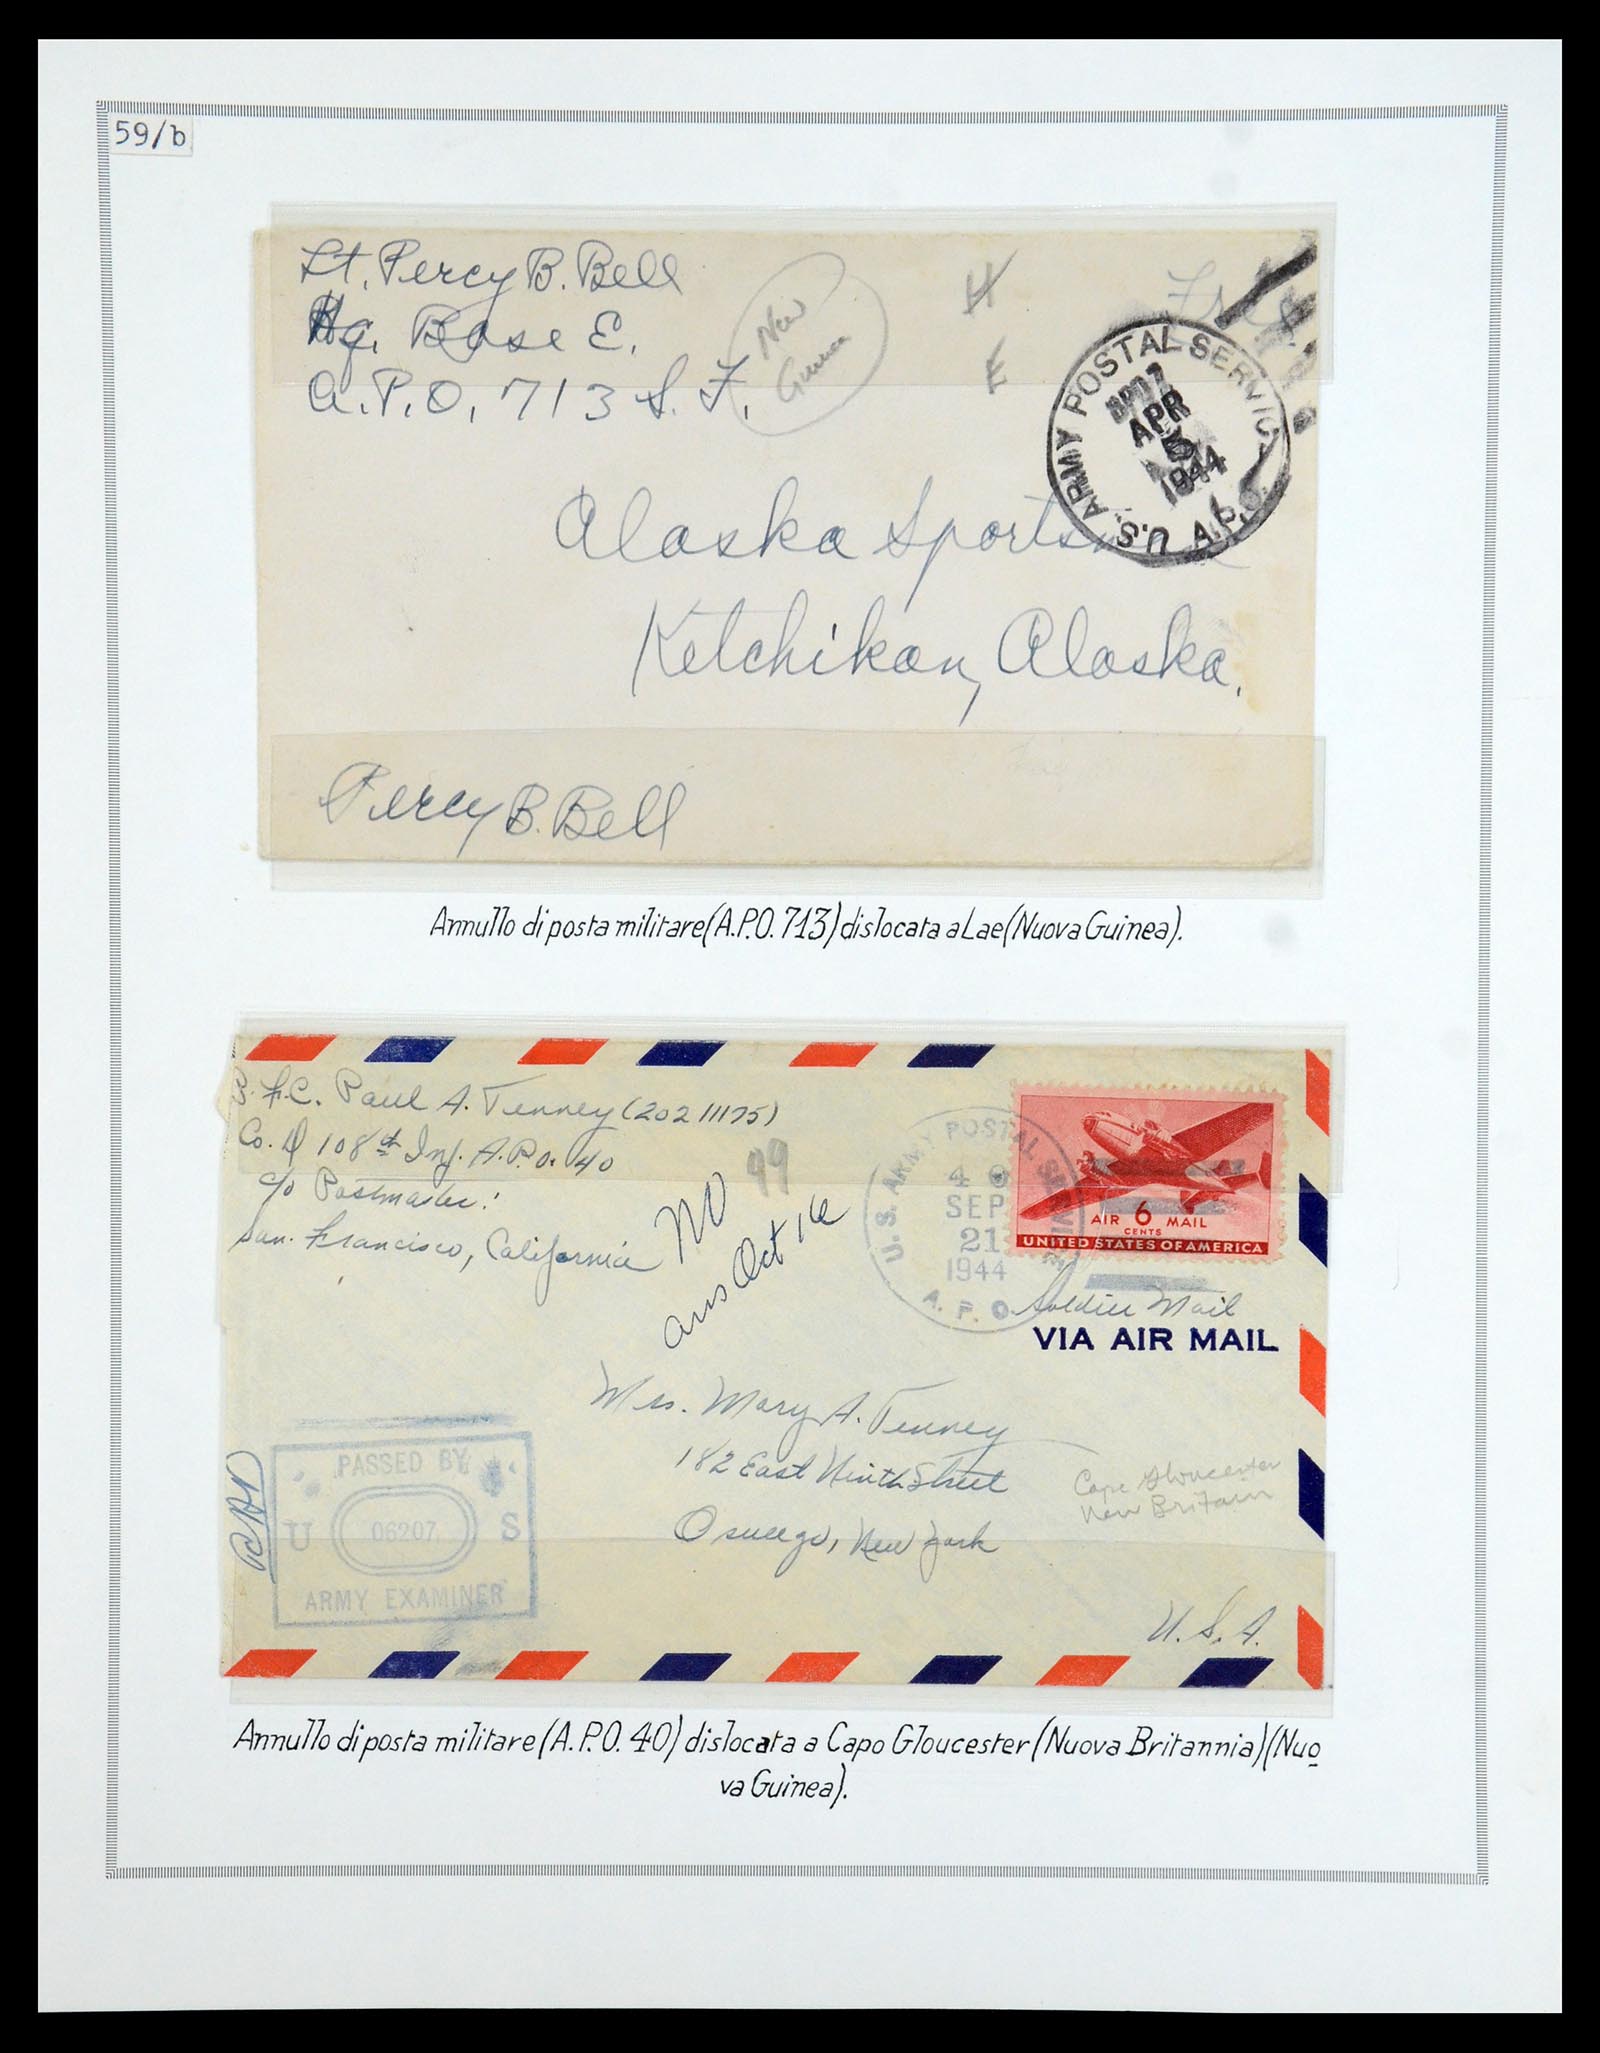 59/b
Lt. Percy B. Bell
Hq. Base E.
A.P.O. 713 S. F.
New
Guinea
H
E
Free
U.S. ARMY POSTAL SERVICE
APR
1944
A.P.O.
Alaska Sportsman
Ketchikan, Alaska.
Percy B. Bell
Annullo di posta militare (A.P.O. 713) dislocata a Lae (Nuova Guinea).
P.F.C. Paul A. Tenney (20211175)
Co. D 108th Inf. A.P.O. 40
c/o Postmaster:
San. Francisco, California
NO 49
ans Oct 16
U.S. ARMY POSTAL SERVICE
4 0
SEP
21
1944
A. P. O.
AIR 6 MAIL
CENTS
UNITED STATES OF AMERICA
Soldier Mail
VIA AIR MAIL
Mrs. Mary A. Tenney
182 East Ninth Street
Oswego, New York
U.S.A.
Cape Gloucester
New Britain
PASSED BY
U 06207 S
ARMY EXAMINER
Annullo di posta militare (A.P.O. 40) dislocata a Capo Gloucester (Nuova Britannia) (Nuo
va Guinea).